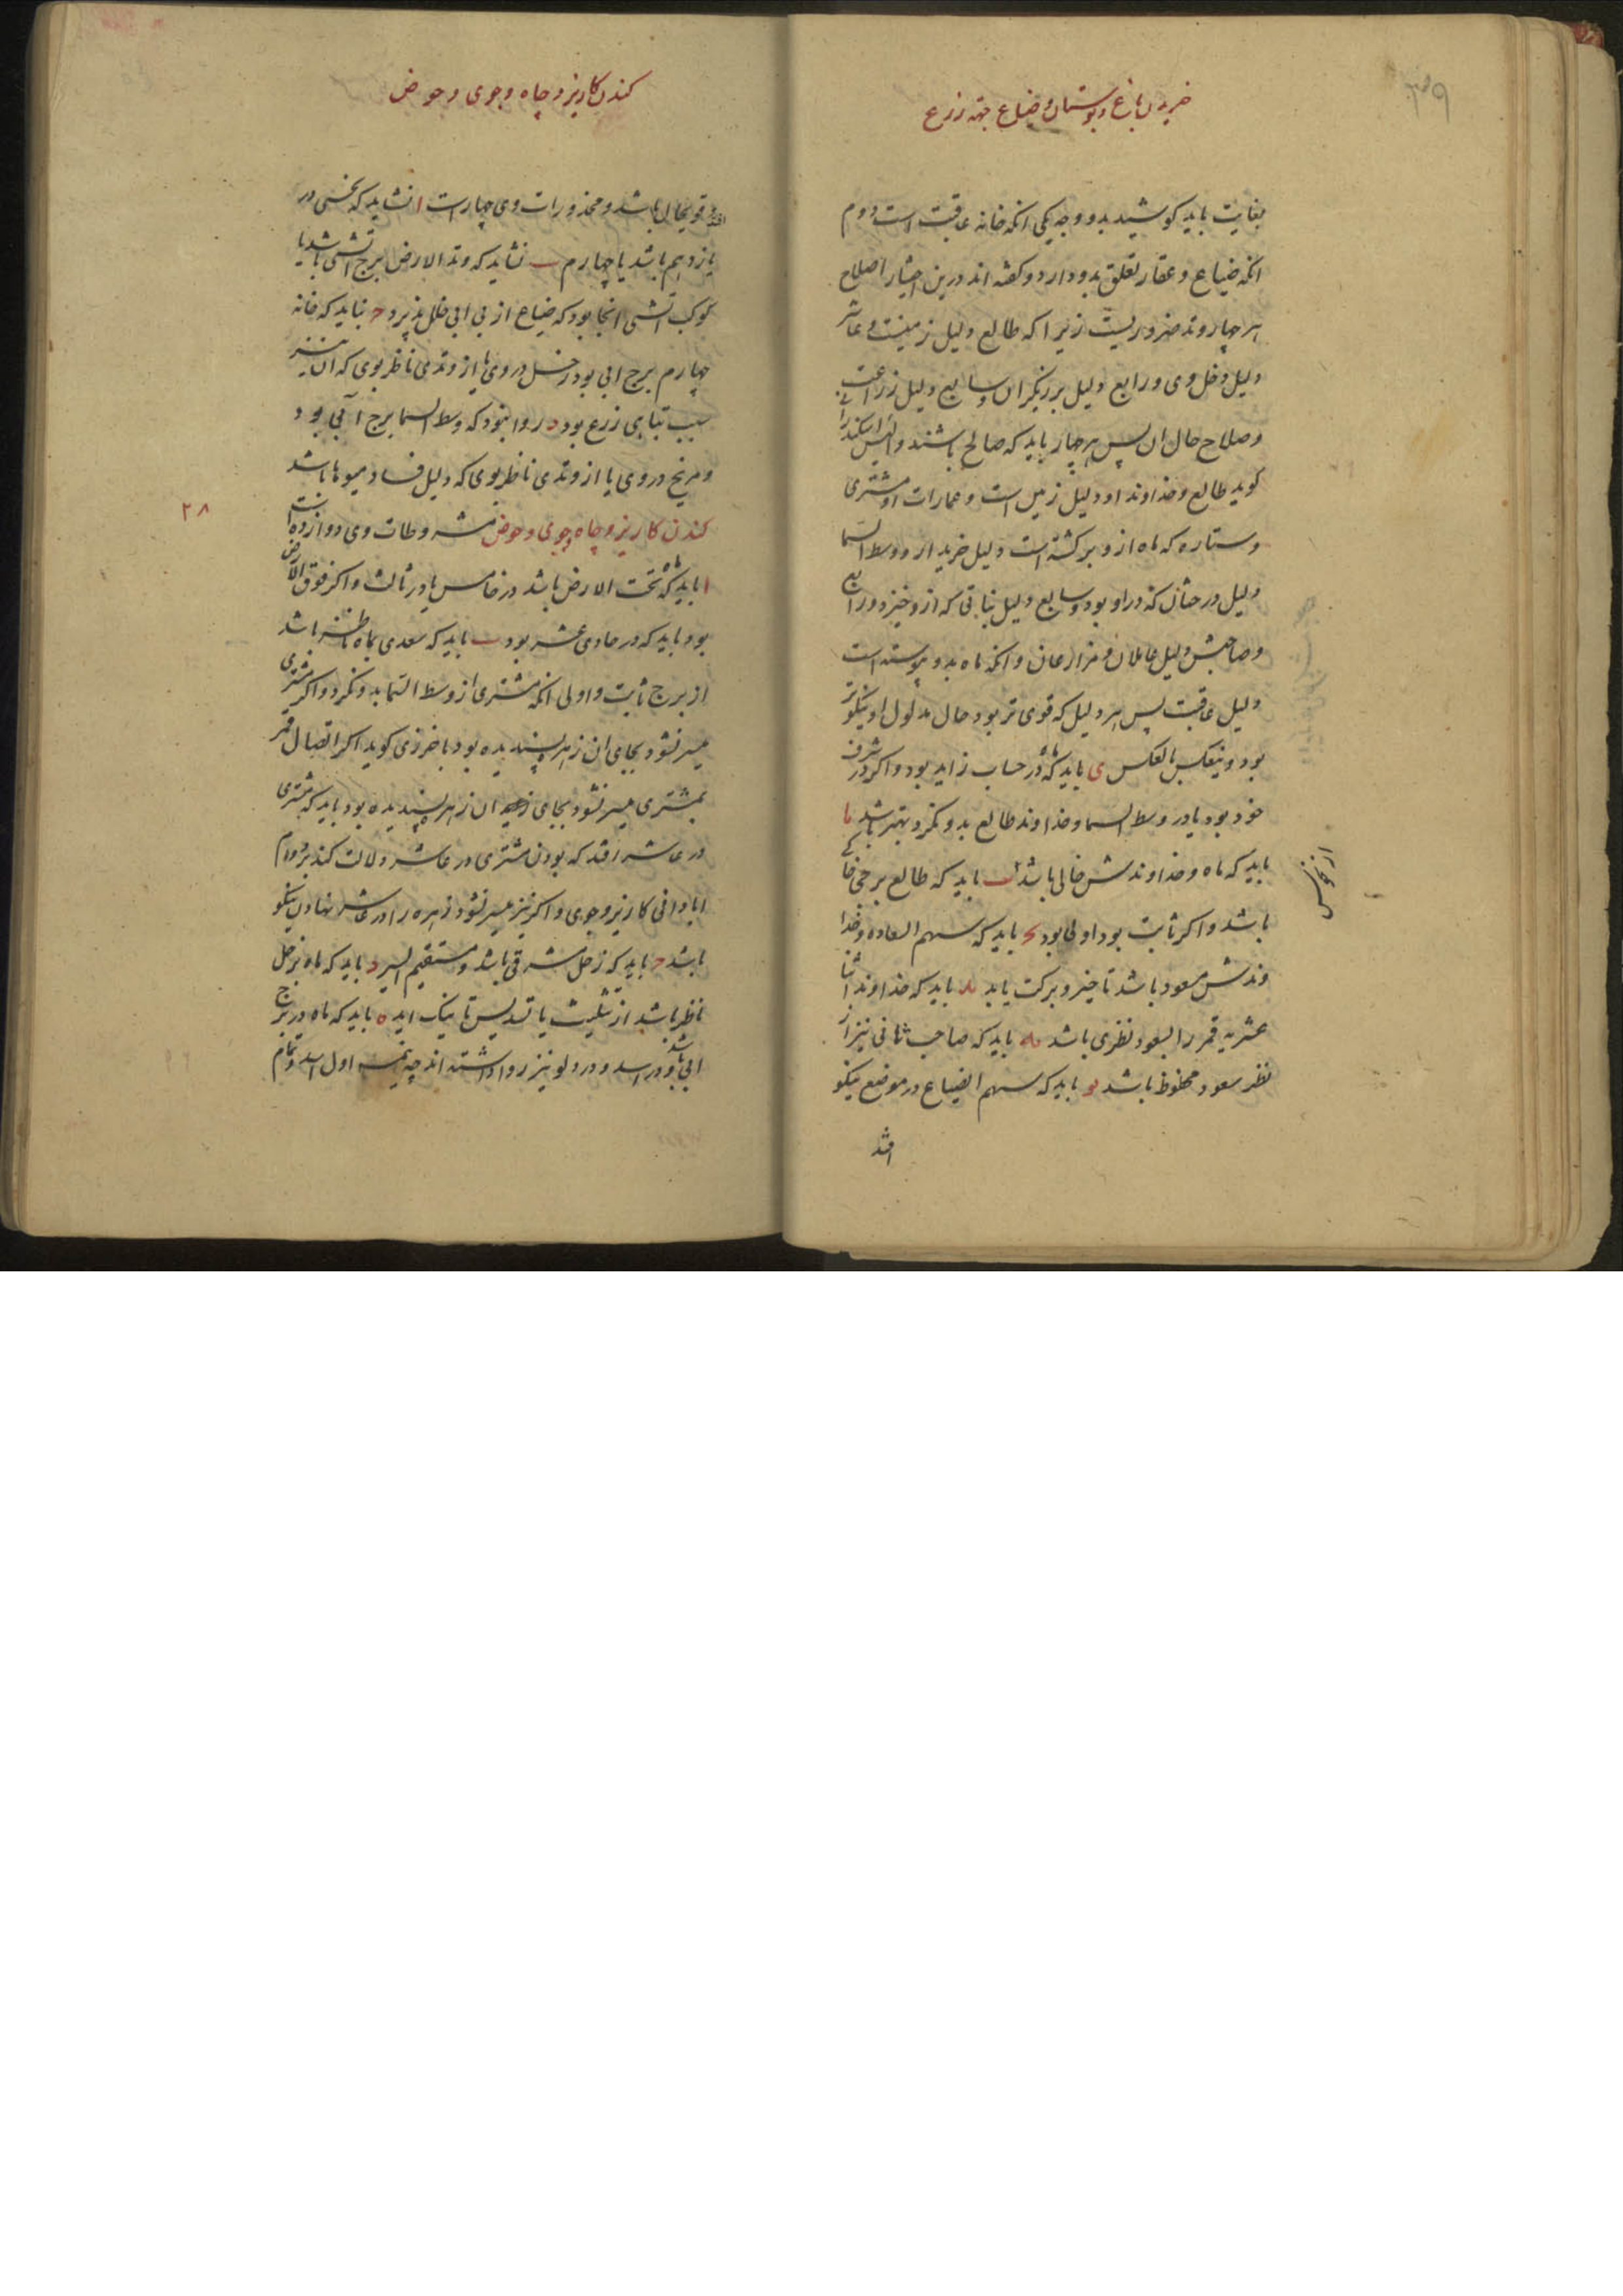 خریدن باغ و بوستان و ضیاع جهة زرع
بغایت باید کوشید بدو وجه یکی انکه خانه عاقبت است دوم
انکه ضیاع و عقار تعلق بدو دارد و کفته اند درین اختیار اصلاح
هر چهار وتد ضروریست زیرا که طالع دلیل زمینست و عاشر
دلیل دخل وی و رابع دلیل برزیکران و سابع دلیل زراعت
و صلاح حال ان پس هر چهار باید که صالح باشند و الیس اسکندرانی
کوید طالع و خداوند او دلیل زمین است و عمارات او مشتری
و ستاره که ماه ازو برکشته است دلیل خریدار و وسط السما
دلیل درختان که دراو بود و سابع دلیل نباتی که ازو خیزد و رابع
و صاحبش دلیل عاملان و مزارعان و انکه ماه بدو پیوسته است
دلیل عاقبت پس هر دلیل که قوی تر بود حال مدلول او نیکوتر
بود و ینعکس بالعکس ی باید که ماه در حساب زاید بود و اکر در شرف
خود بود یا در وسط السما و خداوند طالع بدو نکرد بهتر باشد یا
باید که ماه و خداوندش خالی باشد یب باید که طالع برجی خاکی
از نحوس
باشد و اکر ثابت بود اولی بود یح باید که سهم السعاده و خدا
وندش مسعود باشد تا خیر و برکت یابد ید باید که خداوند اثنا
عشریه قمر را بسعود نظری باشد یه باید که صاحب ثانی نیز از
نظر سعود محظوظ باشد یو باید که سهم الضیاع در موضع نیکو
افتد
کندن کاریز و چاه و جوی و حوض
افتد و قویحال باشد و محذورات وی چهار است ا نشاید که نحسی در
یازدهم باشد یا چهارم ب نشاید که وتد الارض برج اتشی باشد یا
کوکب اتشی انجا بود که ضیاع از بی ابی خلل پذیرد ح نباید که خانه
چهارم برج ابی بود و زحل در وی یا از وتدی ناظر بوی که ان نیز
سبب تباهی زرع بود د روا نبود که وسط السما برج آبی بود
و مریخ در وی یا از وتدی ناظر بوی که دلیل فساد میوها باشد
۲۸
کندن کاریز و چاه و جوی و حوض مشروطات وی دوازده است
ا باید که ماه تحت الارض باشد در خامس یا در ثالث و اکر فوق الارض
بود باید که در حادی عشر بود ب باید که سعدی بماه ناظر باشد
از برج ثابت و اولی انکه مشتری از وسط السما بدو نکرد و اکر مشتری
میسر نشود بجای ان زهره پسندیده بود باخرزی کوید اکر اتصال قمر
بمشتری میسر نشود بجای ان زهره پسندیده بود باید که مشتری
در عاشر افتد که بودن مشتری در عاشر دلالت کند بر دوام
ابادانی کاریز و جوی و اکر نیز میسر نشود زهره را در عاشر نهادن نیکو
باشد ح باید که زحل مشرقی باشد و مستقیم السیر د باید که ماه بزحل
ناظر باشد از تثلیث یا تسدیس تا نیک اید ه باید که ماه در برج
ابی باشد و در اسد و در دلو نیز روا داشته اند چه نیمه اول اسد و تمام